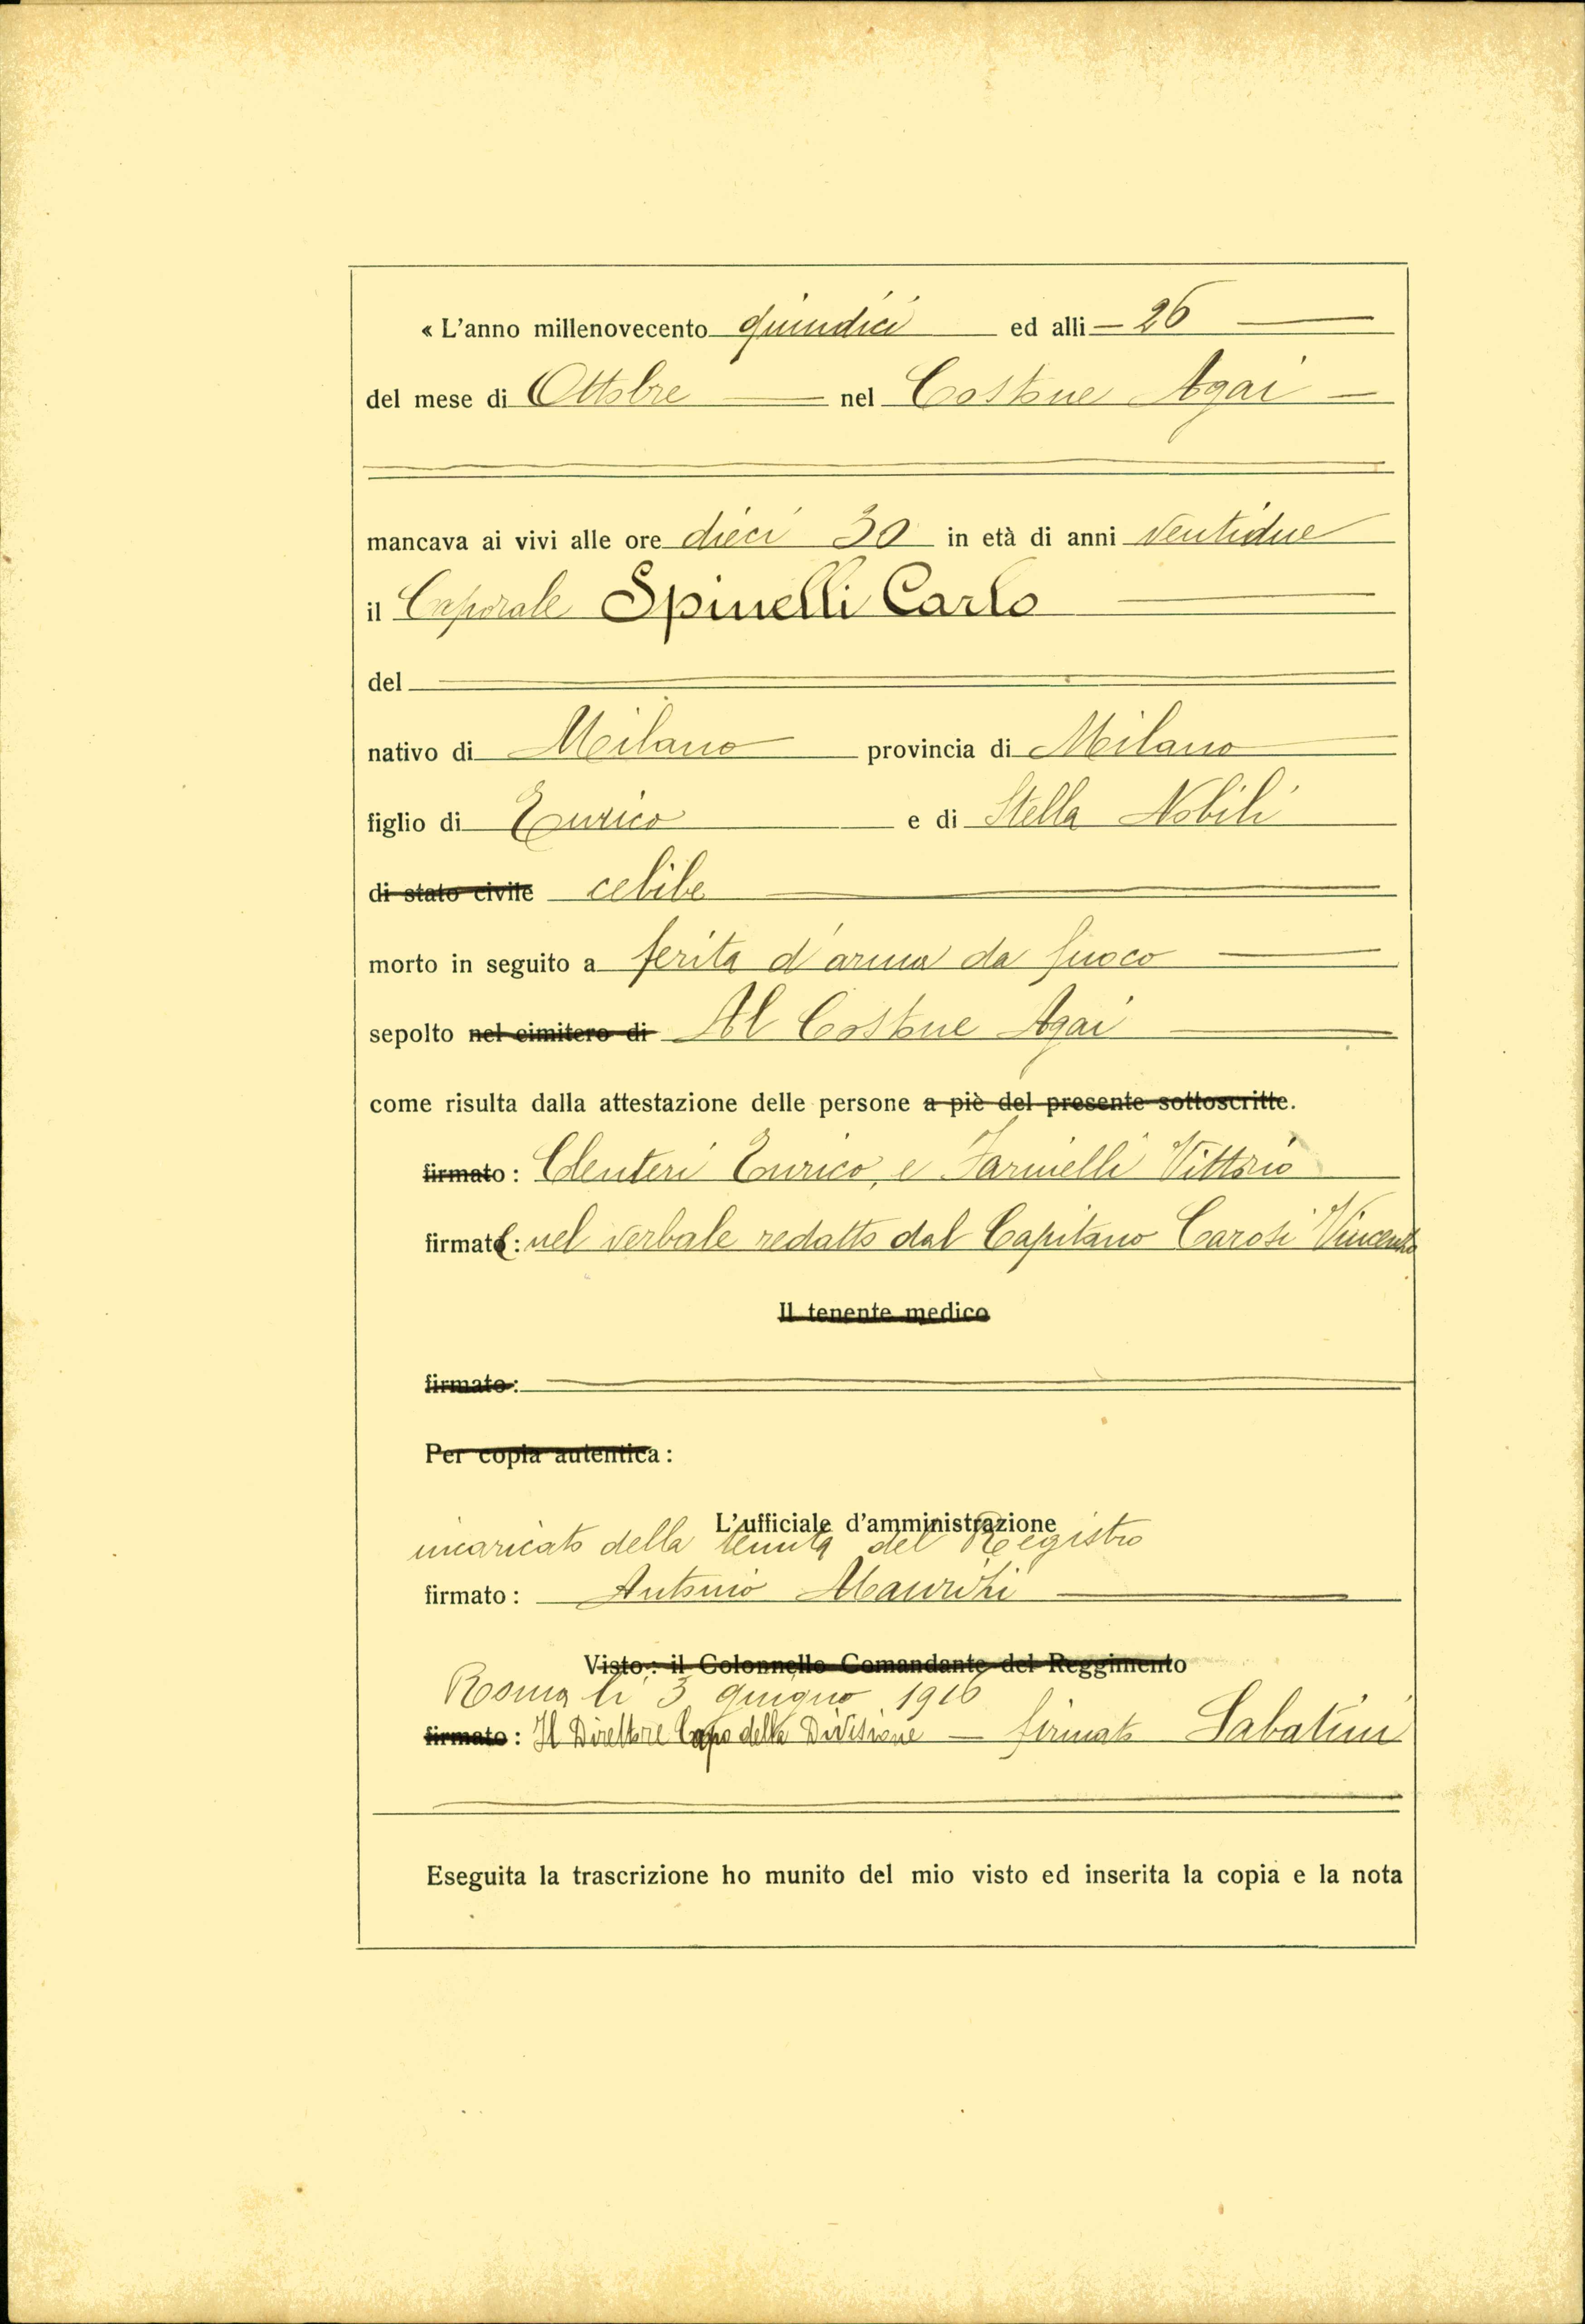 « L'anno millenovecento quindici ed alli 26
del mese di Ottobre nel Costone Agai
mancava ai vivi alle ore dieci 30 in età di anni ventidue
il Caporale Spinelli Carlo
del
nativo di Milano provincia di Milano
figlio di Enrico e di Stella Nobili
di stato civile celibe
morto in seguito a ferita d'arma da fuoco
sepolto nel cimitero di Al Costone Agai
come risulta dalla attestazione delle persone a piè del presente sottoscritte.
firmato : Clenteri Enrico, e Farinelli Vittorio
firmate : nel verbale redatto dal Capitano Carosi Vincenzo
Il tenente medico
firmato :
Per copia autentica :
L'ufficiale d'amministrazione
incaricato della tenuta del Registro
firmato : Antonio Maurizi
Visto : il Colonnello Comandante del Reggimento
Roma li 3 giugno 1916
firmato : Il Direttore Capo della Divisione – firmato Sabatini
Eseguita la trascrizione ho munito del mio visto ed inserita la copia e la nota